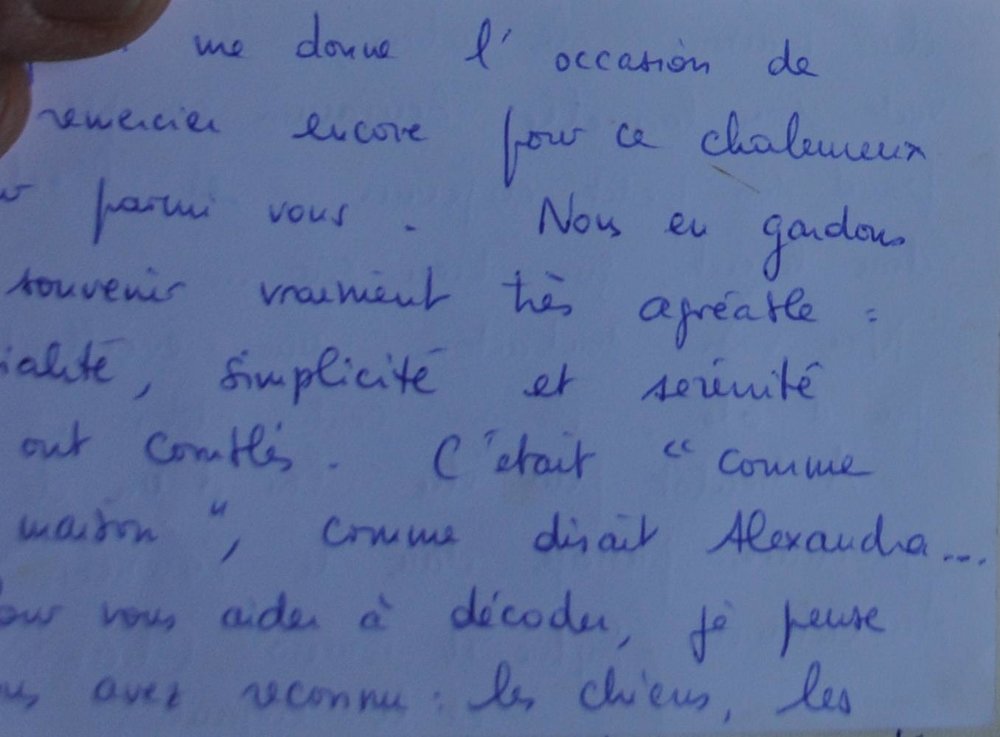 me donne l'occasion de
remercier encore pour ce chaleureux
parmi vous. Nous en gardons
souvenir vraiment très agréable :
ialité, simplicité et sérénité
ont comblés. C'était "comme
maison", comme disait Alexandra...
our vous aider à décoder, je pense
us avez reconnu : les chiens, les